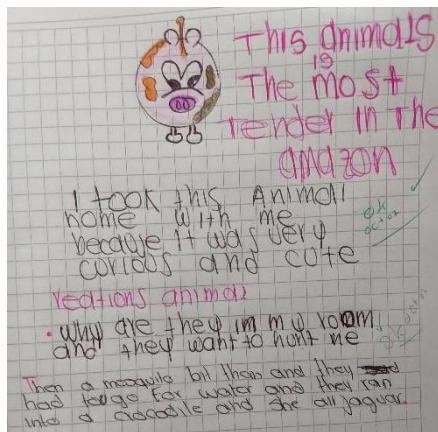 This animals
is
The most
tender in the
amazon
I took this Animal
home with me
because it was very
curious and cute
reations animal
• why are they in my room
and they want to hunt me
Then a mosquito bit than and they
had to go for water and they ran
into a crocodile and she all jaguar.
OK